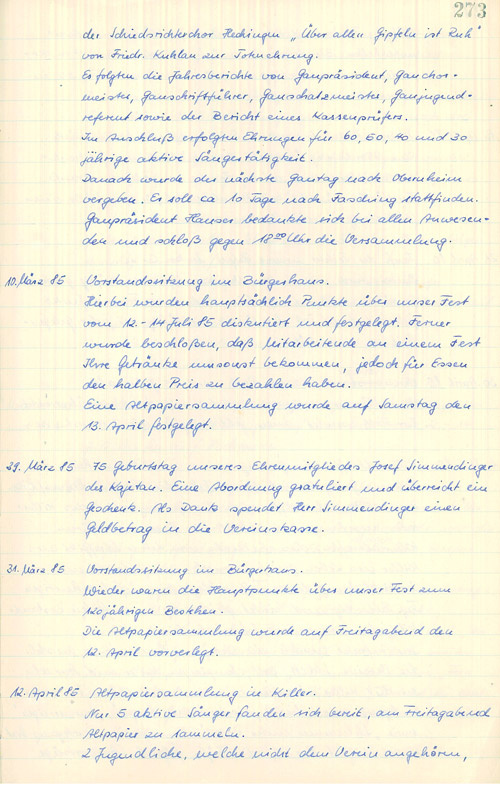 273
der Schiedsrichterchor Hechingen „Über allen Gipfeln ist Ruh"
von Friedr. Kuhlau zur Totenehrung.
Es folgten die Jahresberichte von Gaupräsident, Gauchor-
meister, Gauschriftführer, Gauschatzmeister, Gaujugend-
referent sowie der Bericht eines Kassenprüfers.
Im Anschluß erfolgten Ehrungen für 60, 50, 40 und 30
jährige aktive Sängertätigkeit.
Danach wurde der nächste Gautag nach Obernheim
vergeben. Er soll ca 10 Tage nach Fasching stattfinden.
Gaupräsident Hauser bedankte sich bei allen Anwesen-
den und schloß gegen 18⁰⁰ Uhr die Versammlung.
10. März 85 Vorstandssitzung im Bürgerhaus.
Hierbei wurden hauptsächlich Punkte über unser Fest
vom 12.-14 Juli 85 diskutiert und festgelegt. Ferner
wurde beschloßen, daß Mitarbeitende an einem Fest
Ihre Getränke umsonst bekommen, jedoch für Essen
den halben Preis zu bezahlen haben.
Eine Altpapiersammlung wurde auf Samstag den
13. April festgelegt.
29. März 85 75 Geburtstag unseres Ehrenmitgliedes Josef Simmendinger
des Kajetan. Eine Abordnung gratuliert und überreicht ein
Geschenk. Als Dank spendet Herr Simmendinger einen
Geldbetrag in die Vereinskasse.
31. März 85 Vorstandssitzung im Bürgerhaus.
Wieder waren die Hauptpunkte über unser Fest zum
120jährigen Bestehen.
Die Altpapiersammlung wurde auf Freitagabend den
12. April vorverlegt.
12. April 85 Altpapiersammlung in Killer.
Nur 5 aktive Sänger fanden sich bereit, am Freitagabend
Altpapier zu sammeln.
2 Jugendliche, welche nicht dem Verein angehören,